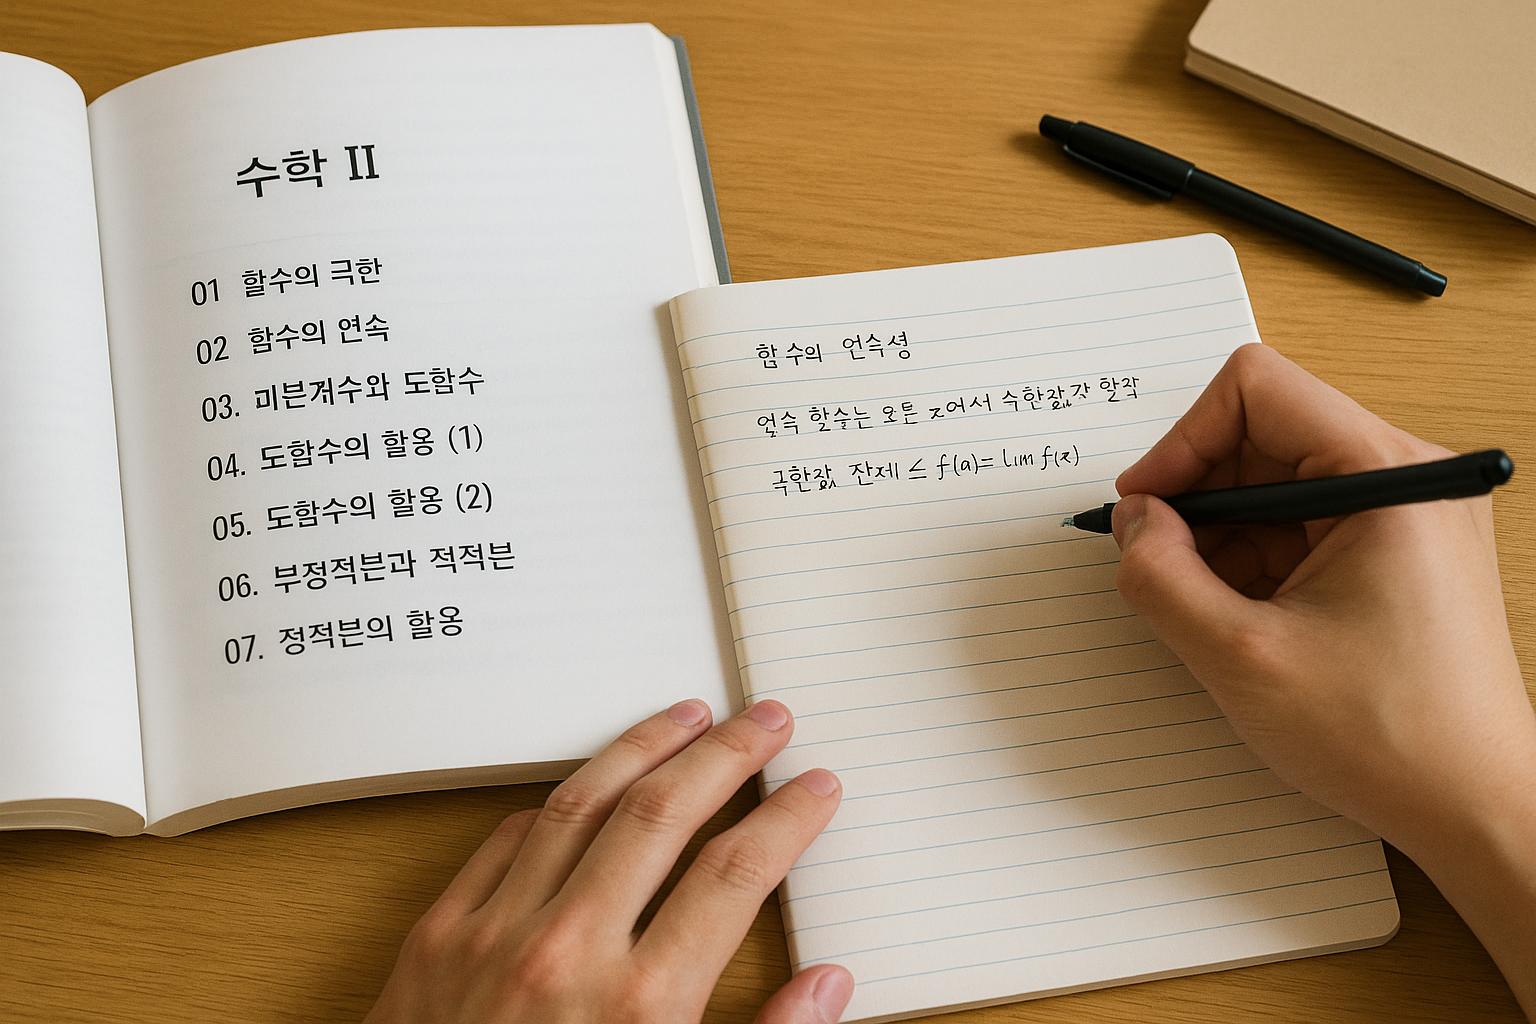 수학 II
01 할수의 극한
02 함수의 연속
03. 미븐계수와 도함수
04. 도함수의 할용 (1)
05. 도함수의 할옹 (2)
06. 부정적븐과 적적븐
07. 정적븐의 할옹
함수의 언속셩
할수는 모튼
극한값 잔제 ≤ f(a)= lim f(x)